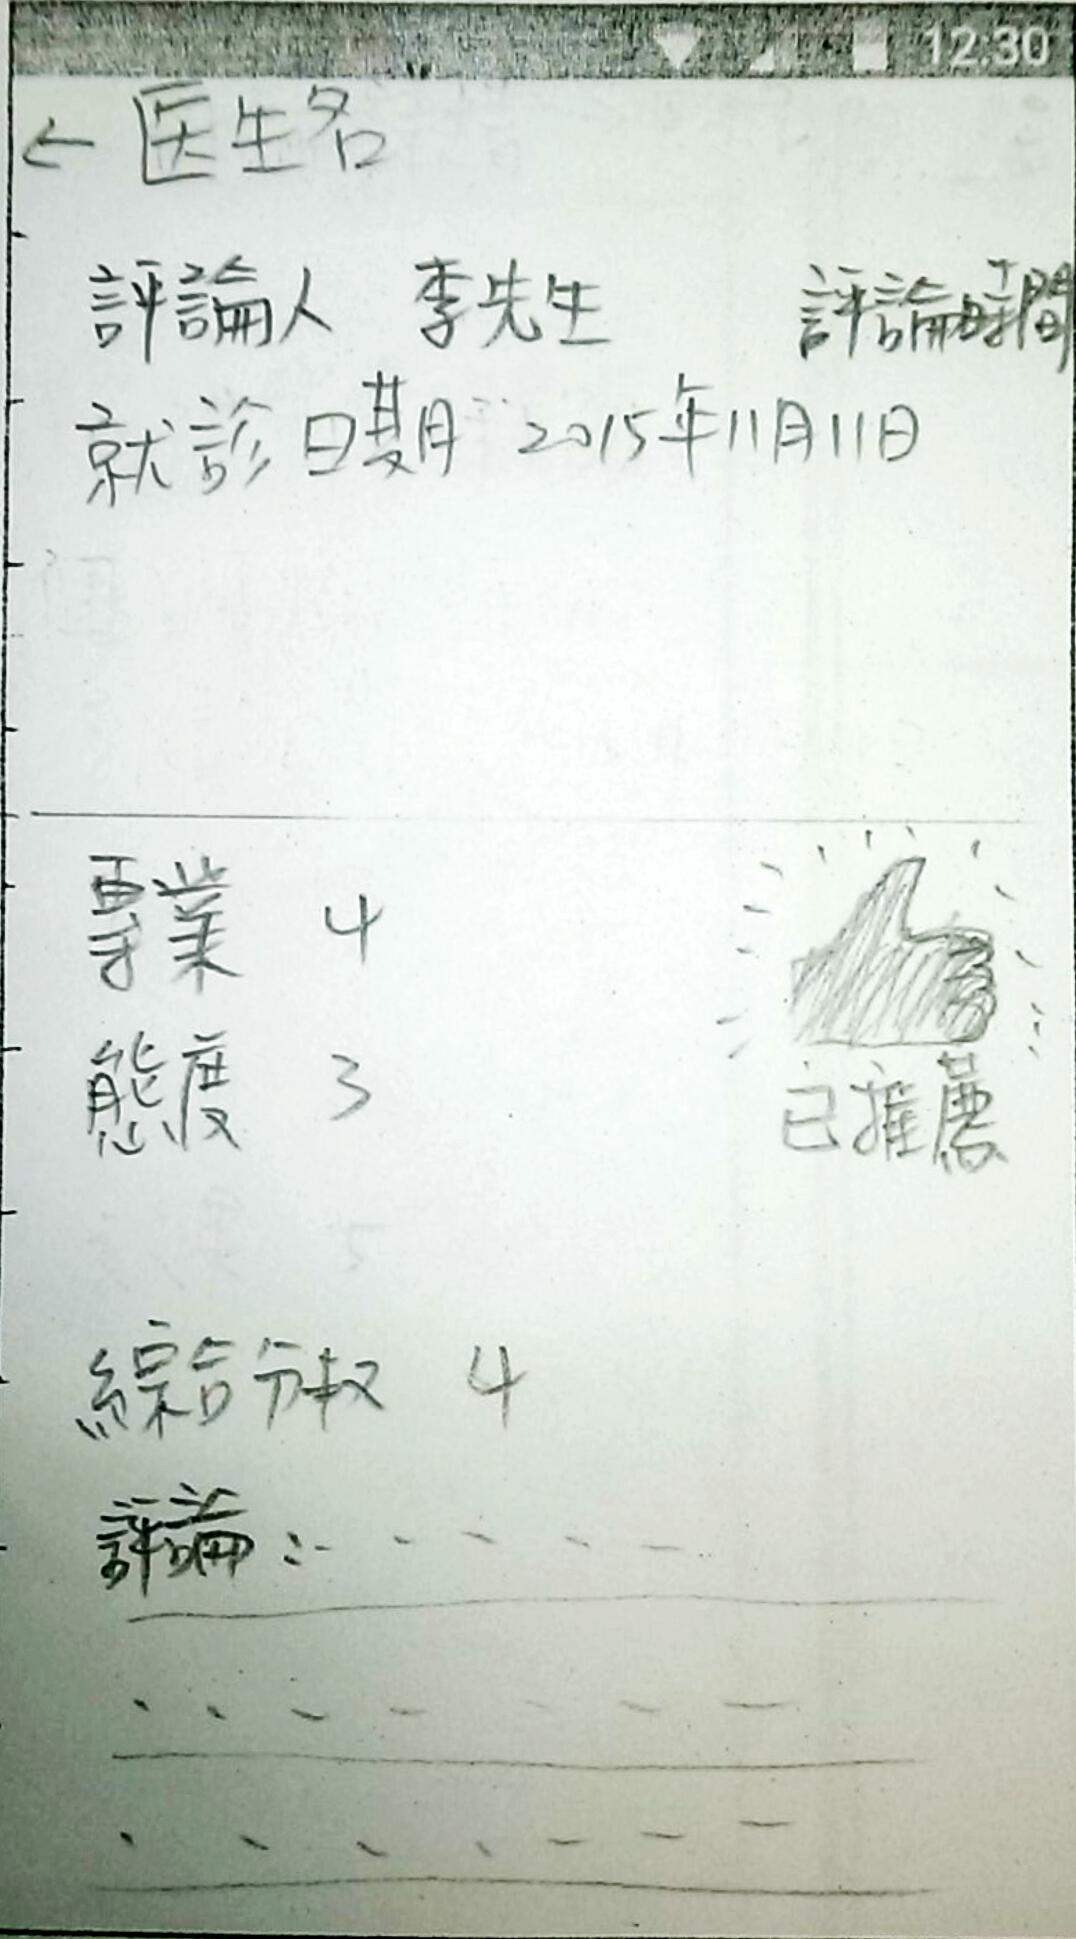 12:30
← 医生名
評論人 李先生 評論時間
就診日期 2015年11月11日
專業 4
態度 3
已推薦
綜合分叔 4
評論: